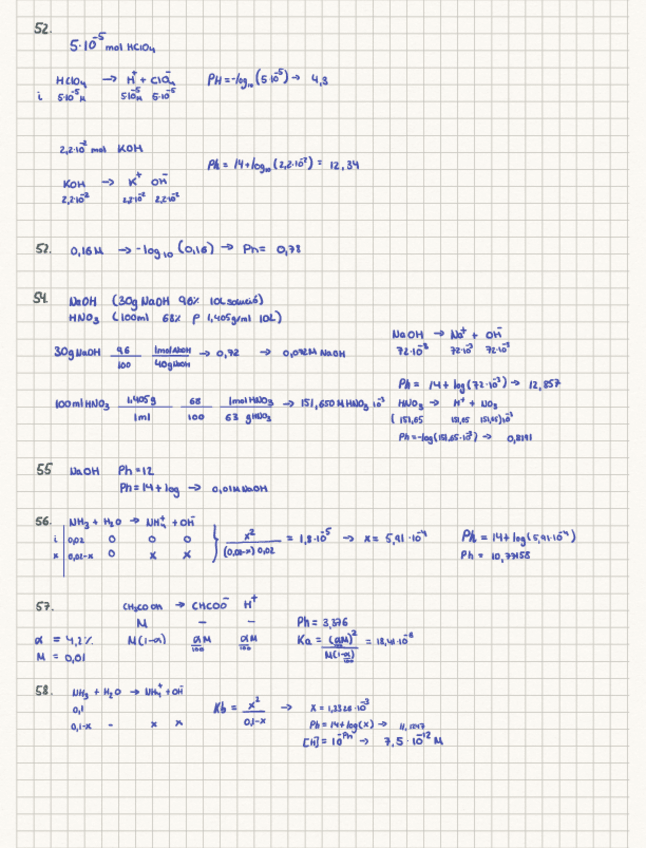 52.
5·10⁻⁵ mol HClO₄
HClO₄ → H⁺ + ClO₄⁻ PH=-log₁₀(5·10⁻⁵) → 4,3
i 5·10⁻⁵M 5·10⁻⁵M 5·10⁻⁵
2,2·10⁻² mol KOH
Ph = 14+log₁₀(2,2·10⁻²) = 12,34
KOH → K⁺ OH⁻
2,2·10⁻² 2,2·10⁻² 2,2·10⁻²
52. 0,16M → -log₁₀ (0,16) → Ph= 0,78
54. NaOH (30g NaOH 96% 10L solució)
HNO₃ (100ml 68% ρ 1,405g/ml 10L)
NaOH → Na⁺ + OH⁻
72·10⁻³ 72·10⁻³ 72·10⁻³
30g NaOH 96/100 1mol NaOH/40g NaOH → 0,72 → 0,072M NaOH
Ph = 14+log(72·10⁻³) → 12,857
100ml HNO₃ 1,405g/1ml 68/100 1mol HNO₃/63 g HNO₃ → 151,650 M HNO₃ 10⁻³
HNO₃ → H⁺ + NO₃
(151,65 151,65 151,65)10⁻³
Ph=-log(151,65·10⁻³) → 0,8191
55 NaOH Ph=12
Ph=14+log → 0,01M NaOH
56. NH₃ + H₂O → NH₄⁺ + OH⁻
i 0,02 0 0 0
x 0,02-x 0 x x
x²/(0,02-x) 0,02 = 1,8·10⁻⁵ → x= 5,91·10⁻⁴ Ph=14+log(5,91·10⁻⁴)
Ph = 10,77158
57. CH₃COOH → CHCOO⁻ H⁺
M - - Ph = 3,376
α = 4,2% M(1-α) αM/100 αM/100 Ka = (αM)²/M(1-α)/100 = 18,41·10⁻⁶
M = 0,01
58. NH₃ + H₂O → NH₄⁺ + OH⁻
0,1 Kb = x²/0,1-x → x=1,3326·10⁻³
0,1-x - x x Ph=14+log(x) → 11,1247
[H]=10⁻ᴾʰ → 7,5·10⁻¹² M